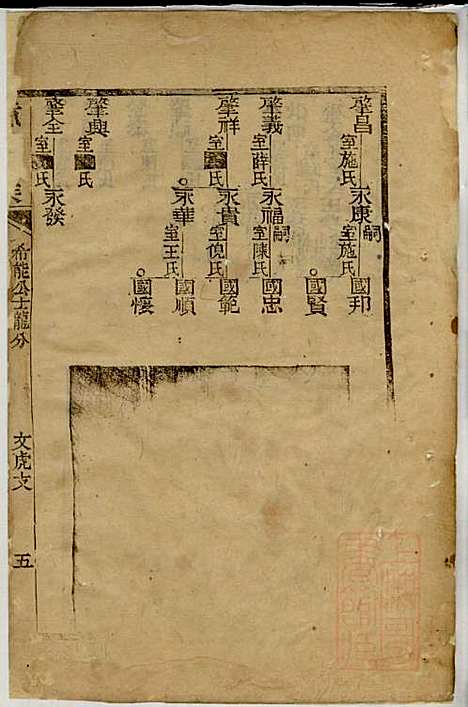 肇昌
室施氏
永康
嗣
室施氏
國邦
國賢
肇義
室薛氏
永福
嗣
室陳氏
國忠
肇祥
室氏
永貴
室倪氏
國範
永華
室王氏
國順
國懷
肇興
室氏
肇全
室氏
永發
希能公士龍分
文虎支
五